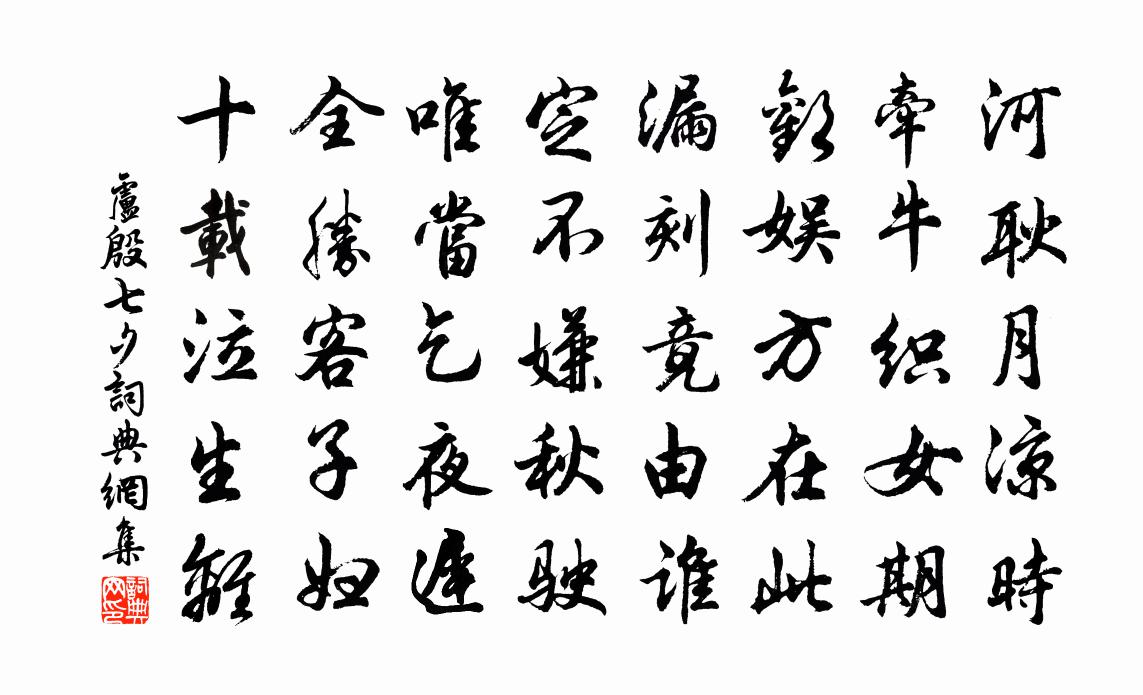 河耿月凉時
牽牛织女期
歡娱方在此
漏刻竟由誰
定不嫌秋駛
唯當乞夜遲
全勝客子妇
十載泣生離
盧殷七夕詞典網集
詞典